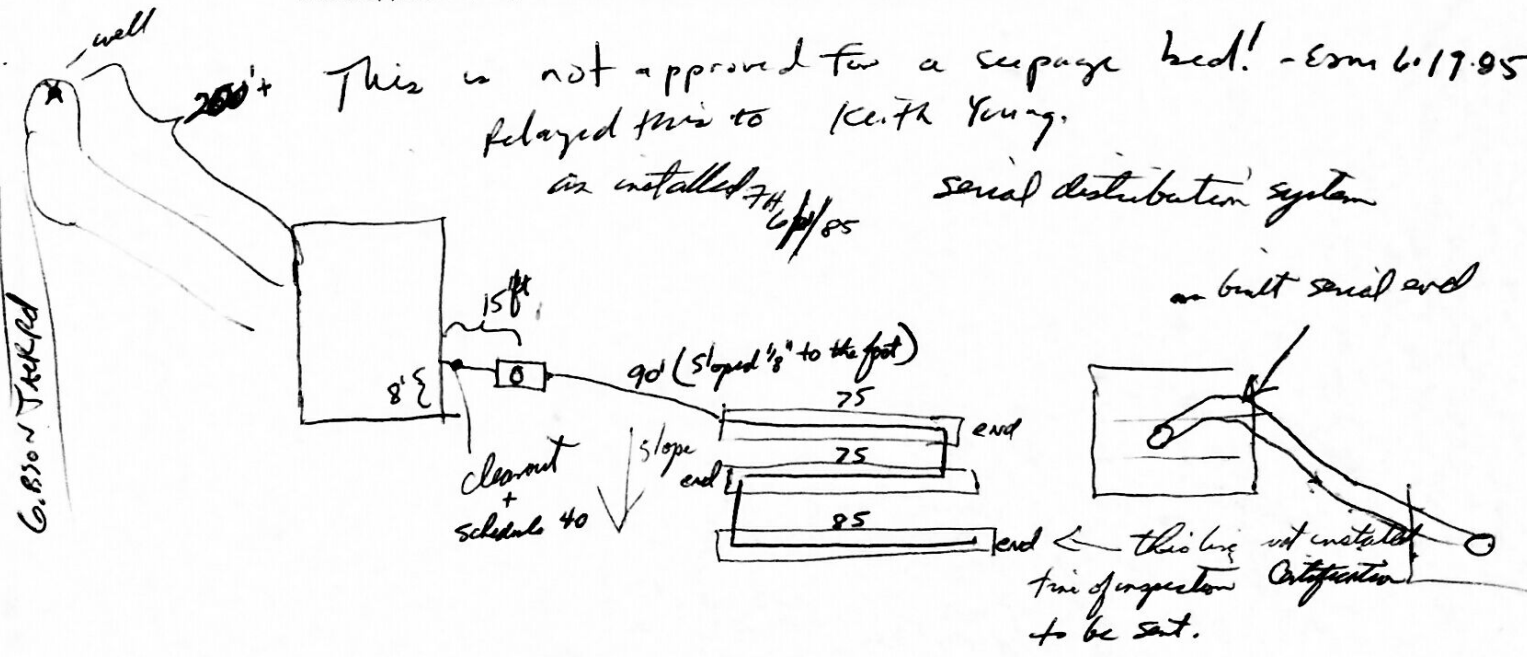 well
200'+
This is not approved for a seepage bed! - Esm 6.19.85
Relayed this to Keith Young.
as installed 7H 6/ /85
serial distribution system
as built serial end
15 ft.
8'
90' (Sloped 1/8" to the foot)
75
end
75
end
85
end ← this line not installed
time of inspection Certification
to be sent.
slope
cleanout
+
schedule 40